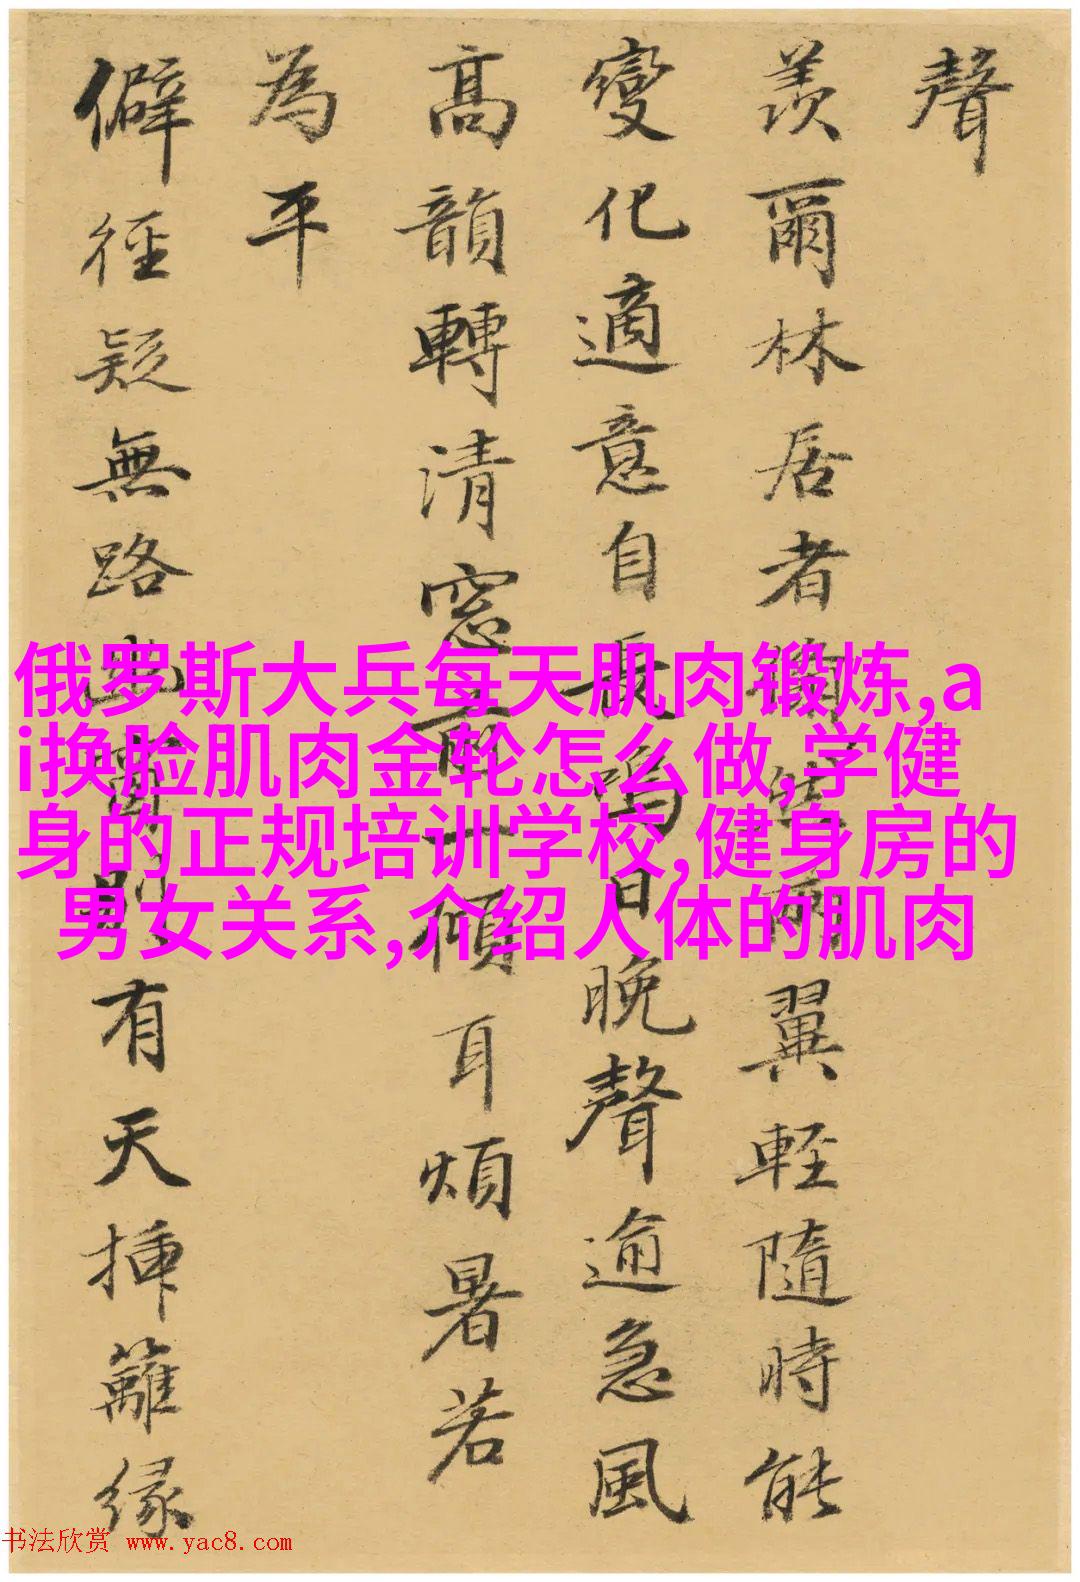 聲
羨爾林居者翼輕隨時能
變化適意自長鳴日晚聲逾急風
高韻轉清窓前一傾耳煩暑若
為平
僻徑疑無路有天插籬緣
俄罗斯大兵每天肌肉锻炼,a
i换脸肌肉金轮怎么做,学健
身的正规培训学校,健身房的
男女关系,介绍人体的肌肉
书法欣赏 www.yac8.com